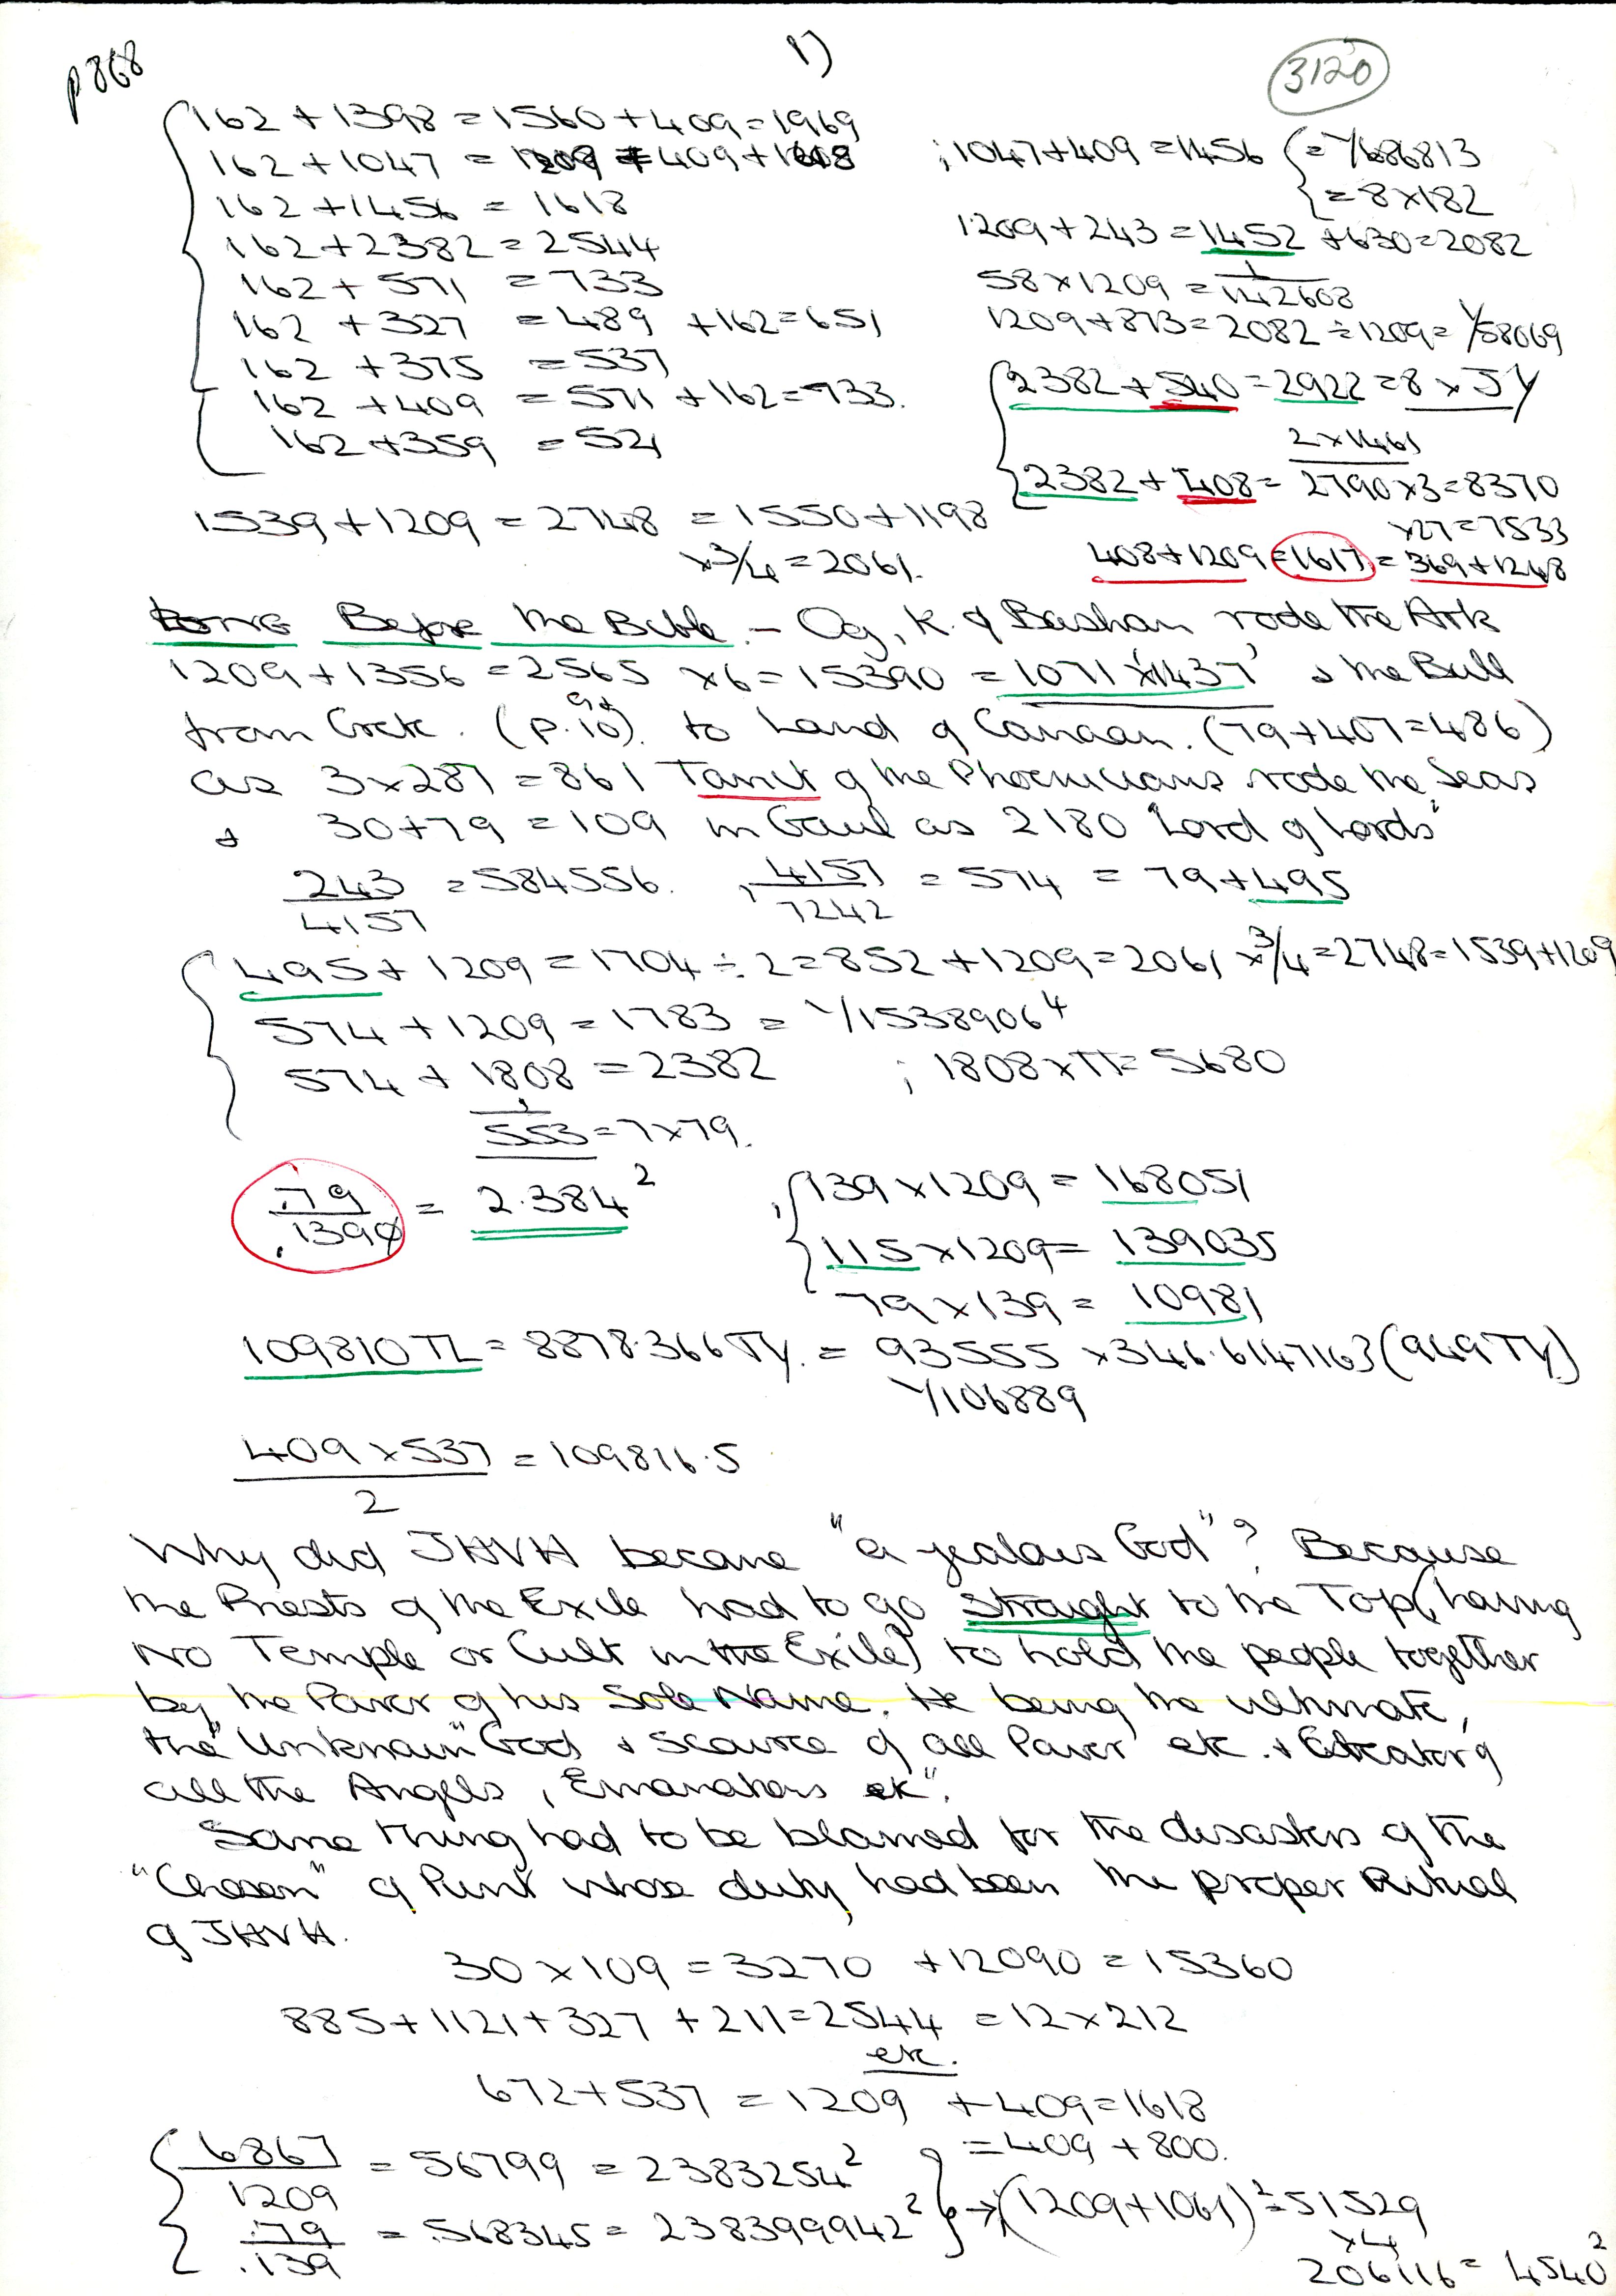 p868
1)
3120
162 + 1398 = 1560 + 409 = 1969
162 + 1047 = 1209 + 409 + 1608
; 1047 + 409 = 1456 { = 1/686813
= 8 x 182
162 + 1456 = 1618
1209 + 243 = 1452 + 630 = 2082
162 + 2382 = 2544
162 + 571 = 733
58 x 1209 = 1/142608
162 + 327 = 489 + 162 = 651
1209 + 873 = 2082 ÷ 1209 = 1/58069
162 + 375 = 537
162 + 409 = 571 + 162 = 733.
2382 + 540 = 2922 = 8 x JY
162 + 359 = 521
2 x 1461
2382 + 408 = 2790 x 3 = 8370
1539 + 1209 = 2748 = 1550 + 1198
x 27 = 7533
x 3/4 = 2061.
408 + 1209 = 1617 = 369 + 1248
Long Before the Bible. - Og, K. of Bashan rode the Ark
1209 + 1356 = 2565 x 6 = 15390 = 1071 x 1437 & the Bull
from Crete. (p. 10). to Land of Canaan. (79 + 407 = 486)
as 3 x 287 = 861 Tanit of the Phoenicians rode the Seas
& 30 + 79 = 109 in Gaul as 2180 "Lord of Lords"
243/4157 = 584556. , 4157/7242 = 574 = 79 + 495
495 + 1209 = 1704 ÷ 2 = 852 + 1209 = 2061 x 3/4 = 2748 = 1539 + 1209
574 + 1209 = 1783 = 1/1538906⁴
574 + 1808 = 2382 ; 1808 x π = 5680
553 = 7 x 79.
.79/.1390 = 2.384²
, { 139 x 1209 = 168051
115 x 1209 = 139035
79 x 139 = 10981
109810 TL = 8878.366 TY. = 93555 x 346.6147163 (949 TY)
1/106889
409 x 537 / 2 = 109816.5
Why did JHVH become "a jealous God"? Because
the Priests of the Exile had to go straight to the Top, (having
No Temple or Cult in the Exile) to hold the people together
by the Power of his Sole Name. He being the ultimate,
the "Unknown" God & Source of all Power etc. & Creator of
all the Angels, Emanations etc".
Some thing had to be blamed for the disasters of the
"Chosen" of Punt whose duty had been the proper Ritual
of JHVH.
30 x 109 = 3270 + 12090 = 15360
885 + 1121 + 327 + 211 = 2544 = 12 x 212
etc.
672 + 537 = 1209 + 409 = 1618
= 409 + 800.
6867/1209 = 56799 = 2383254²
.79/.139 = .568345 = 238399942²
} → (1209 + 1061)² = 51529
x 4
206116 = 4540²